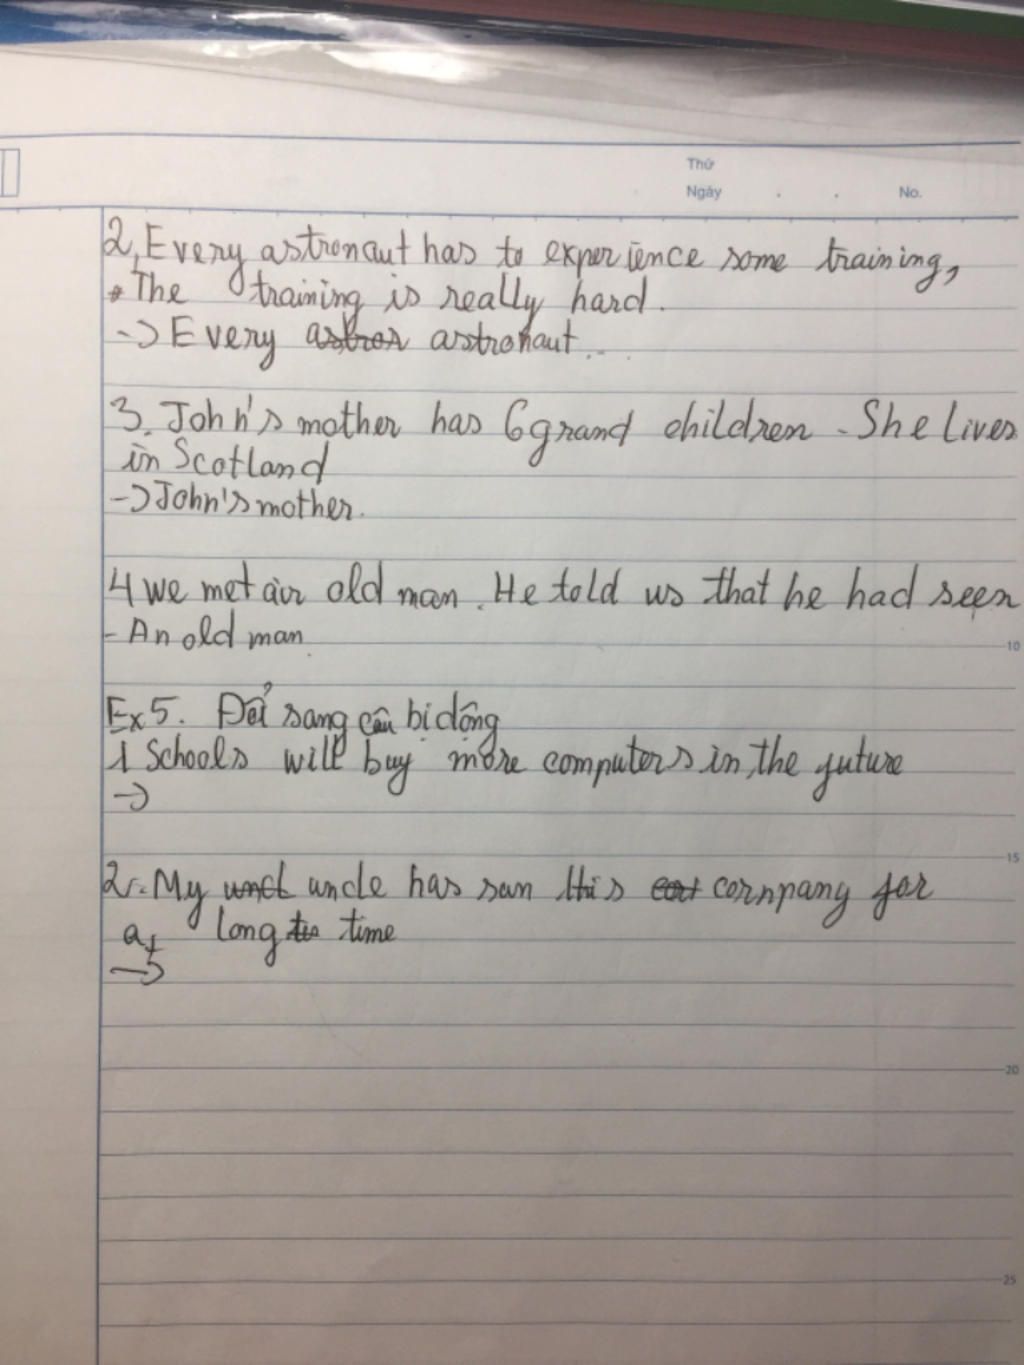 Thứ
Ngày . . No.
2, Every astronaut has to experience some training,
The training is really hard.
-> Every astronaut...
3. John's mother has 6 grand children. She lives
in Scotland
-> John's mother.
4 we met an old man. He told us that he had seen
- An old man.
10
Ex 5. Đổi sang câu bị động
1 Schools will buy more computers in the future
->
15
2. My uncle has run this company for
a long time
->
20
25